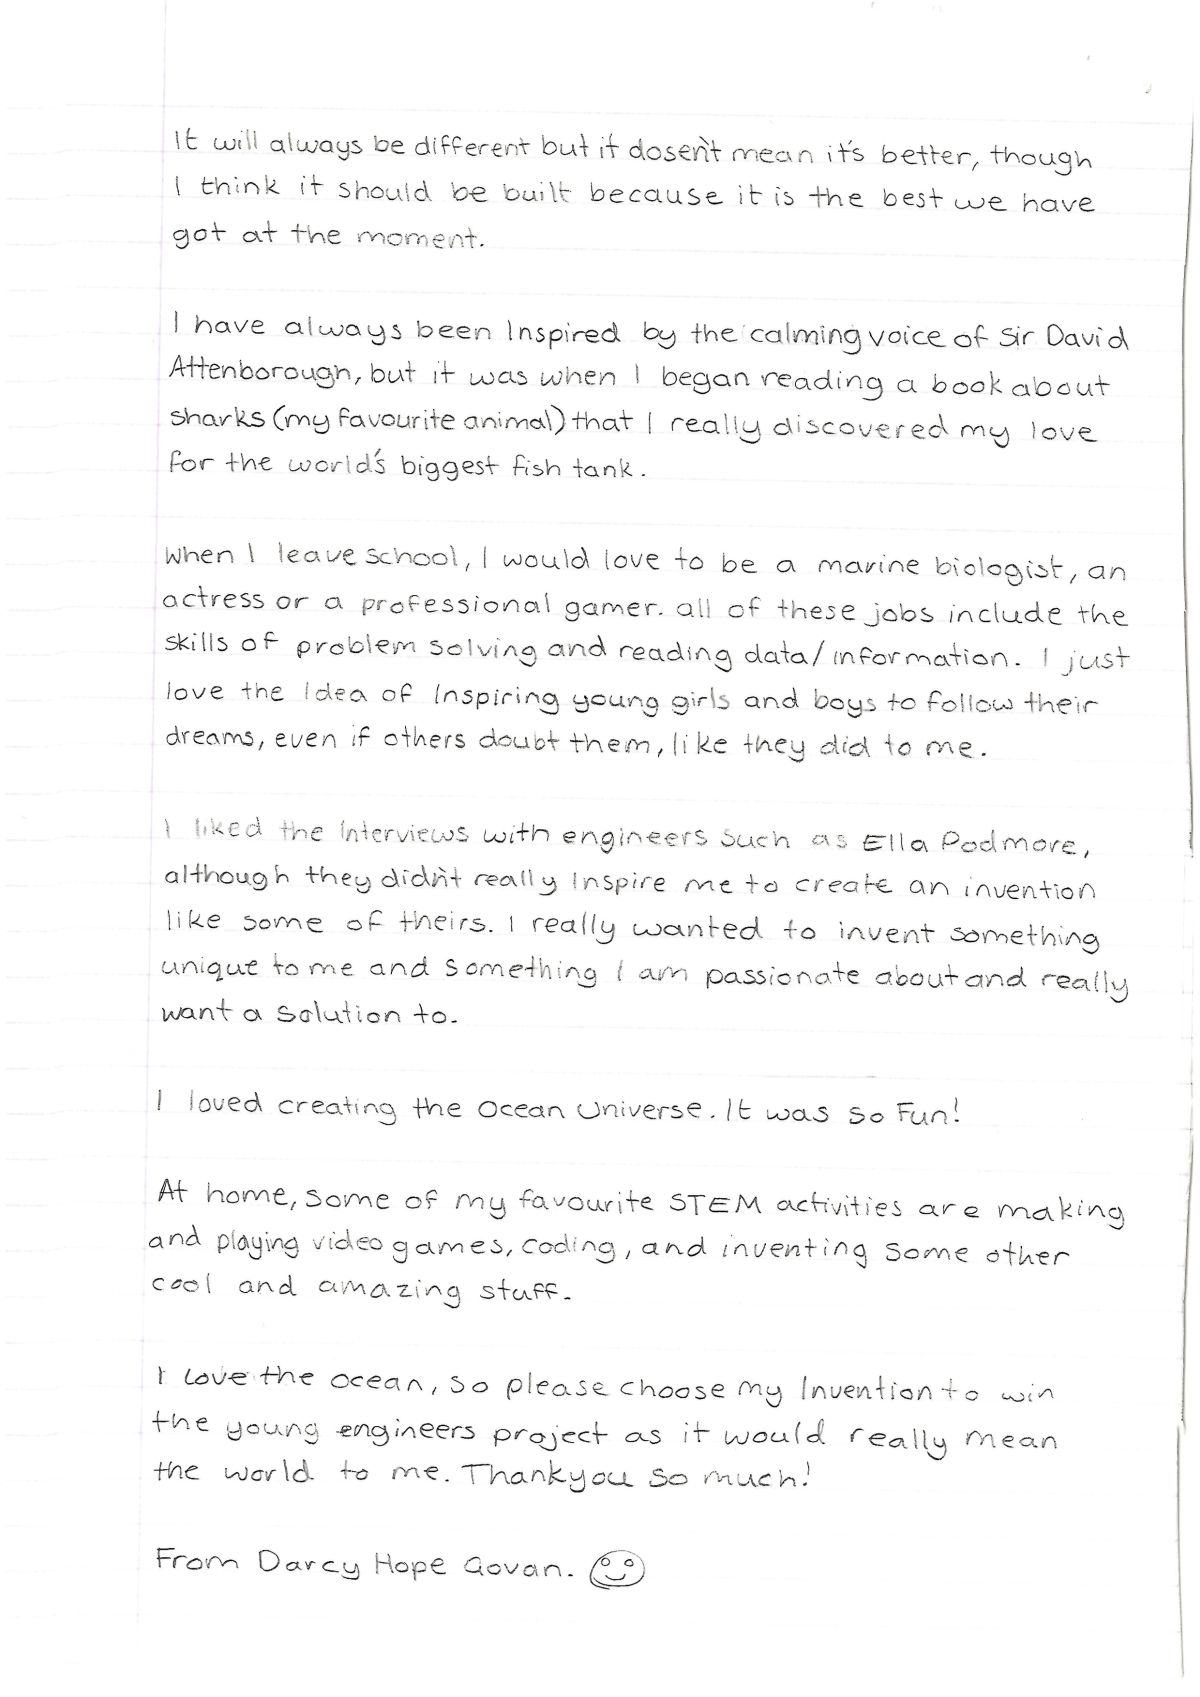 It will always be different but it dosen't mean it's better, though
I think it should be built because it is the best we have
got at the moment.
I have always been Inspired by the calming voice of Sir David
Attenborough, but it was when I began reading a book about
sharks (my favourite animal) that I really discovered my love
for the world's biggest fish tank.
When I leave school, I would love to be a marine biologist, an
actress or a professional gamer. all of these jobs include the
skills of problem solving and reading data/information. I just
love the Idea of Inspiring young girls and boys to follow their
dreams, even if others doubt them, like they did to me.
I liked the Interviews with engineers such as Ella Podmore,
although they didn't really Inspire me to create an invention
like some of theirs. I really wanted to invent something
unique to me and something I am passionate about and really
want a solution to.
I loved creating the Ocean Universe. It was so Fun!
At home, some of my favourite STEM activities are making
and playing video games, coding, and inventing some other
cool and amazing stuff.
I Love the ocean, so please choose my Invention to win
the young engineers project as it would really mean
the world to me. Thankyou so much!
From Darcy Hope Govan.